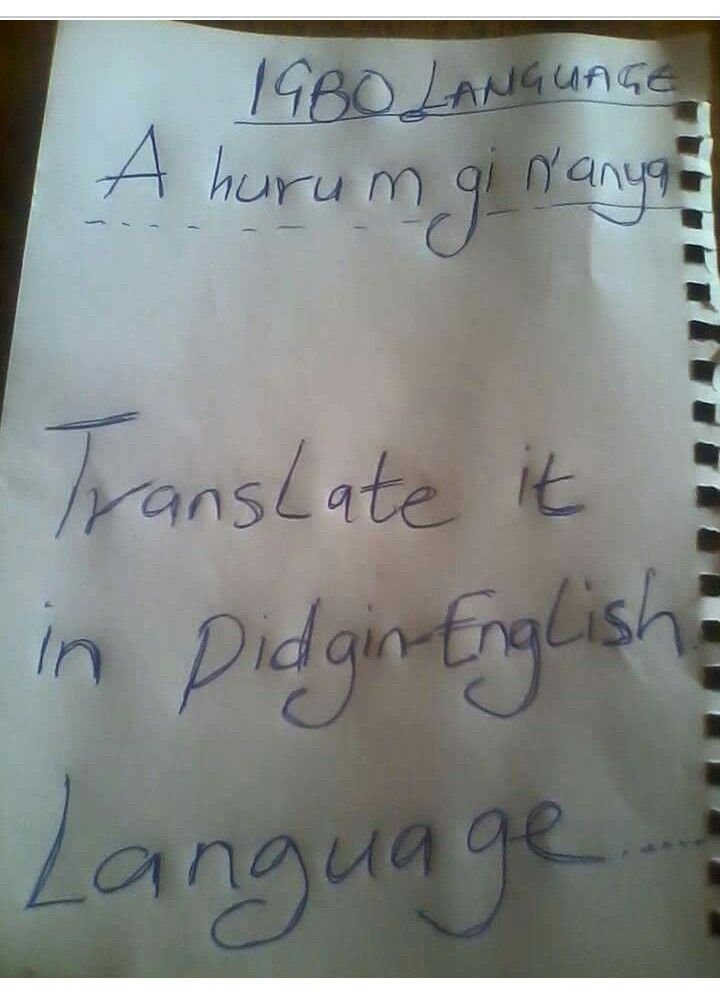 IGBO LANGUAGE
A hurum gi n'anya
Translate it
in Pidgin-English
Language......